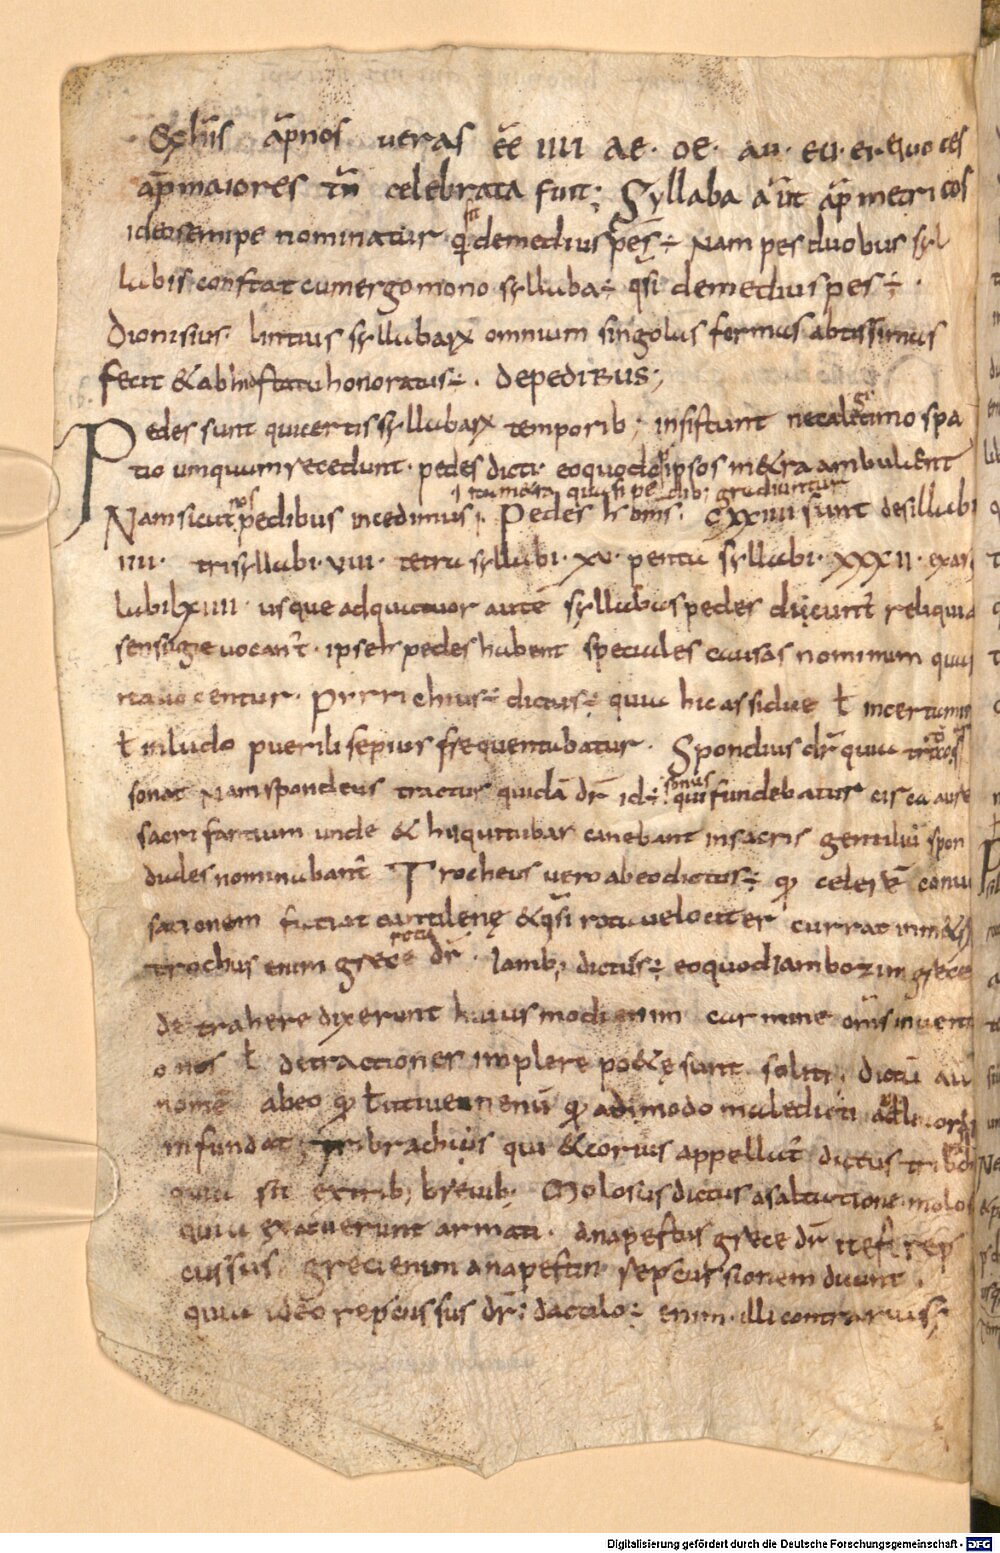 Sch̄is ap̄ nos ueras eē IIII ae. oe. au. eu. ei. &uoces
ap̄ maiores tn̄ celebrata fuit; Syllaba aūt ap̄ metricos
ideo semipes nominatur q̄ sit demedius pes ÷ Nam pes duobus syl
labis constat cum ergo mono syllaba ÷ q̄si demedius pes ÷ .
Dionisius lintius syllabarum omnium singolas formas abtissimas
fecit & ab hoc statu honoratus ÷ . DE PEDIBUS;
Pedes sunt qui certis syllabarum temporib; insistunt nec a legitimo spa
tio umquam recedunt. pedes dicti eo quod per ipsos metra ambulent
ita metra quasi pedib; gradiuntur
Nam sicut nos pedibus incedimus. Pedes h omīs. CXXIIII sunt desillabi
IIII. trisyllabi. VIII. tetra syllabi. XV. penta syllabi. XXXII. exasy
labi LXIIII. usque ad quatuor autē syllabas pedes dicunt̄ reliqui a
senzigie uocant̄. ipse h̄ pedes habent speciales causas nominum quare
ita uocentur. Pirrichius ÷ dictus ÷ quia hic assidue ł in certamine
ł in ludo puerili sepius frequentabatur. Spondius dr̄ quia tractos
sonat Nam spondeus tractus quidā dr̄ id÷ sonus qui fundebatur circa aure
sacrificantium unde & hii qui tubas canebant in sacris gentiliū spon
diales nominabant̄ Trocheus uero ab eo dictus ÷ qd̄ celerē conuer
sationem faciat cantilenę & q̄si rota uelociter currat in metris
trochus enim grece rota dr̄. Iamb; dictus ÷ eo quod iambozin grece
detrahere dixerunt huius modi enim carmine om̄s inuecti
ones ł detractiones implere poetę sunt soliti. Dictū au
nomē ab eo qd̄ ł ut iuenenenū qd̄ ad modo maledicti
infundat. Tribrachius qui & corius appellat̄ dictus tribrachius
quia sit ex trib; breuib;. Molosus dictus a saltatione molos
quia exercuerunt armati. anapestus grece dr̄ id est reper
cussus. greci enim anapestin repercursionem dicunt.
quia ideo repercussus dr̄: dactilo ÷ enim illi contrarius;
Digitalisierung gefördert durch die Deutsche Forschungsgemeinschaft - DFG